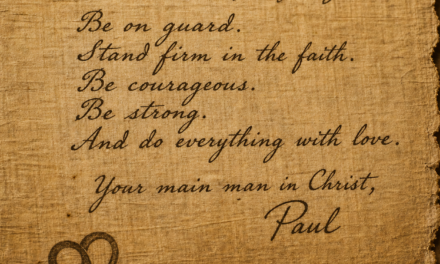 Be on guard.
Stand firm in the faith.
Be courageous.
Be strong.
And do everything with love.
Your main man in Christ,
Paul